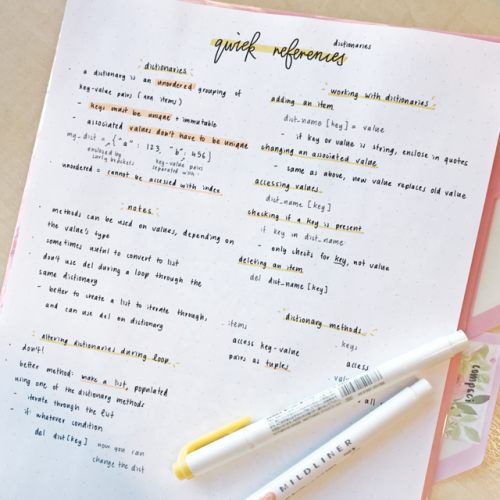 dictionaries
quick references
dictionaries:
• a dictionary is an unordered grouping of
key-value pairs (aka items)
- keys must be unique + immutable
- associated values don't have to be unique
my_dict = {"a" : 123, "b", 456}
enclosed by
curly brackets
key-value pairs
separated with :
• unordered = cannot be accessed with index
notes:
• methods can be used on values, depending on
the value's type
• sometimes useful to convert to list
• don't use del during a loop through the
same dictionary
- better to create a list to iterate through,
and can use del on dictionary
altering dictionaries during loop
• don't!
• better method: make a list, populated
using one of the dictionary methods
- iterate through the list
- if whatever condition
del dict[key]
now you can
change the dict
working with dictionaries:
adding an item
dict_name [key] = value
- if key or value is string, enclose in quotes
changing an associated value
- same as above, new value replaces old value
accessing values
dict_name [key]
checking if a key is present
if key in dict_name:
- only checks for key, not value
deleting an item
del dict_name[key]
dictionary methods
.items
access key-value
pairs as tuples
.keys
access
- all
MILDLINER
compsci